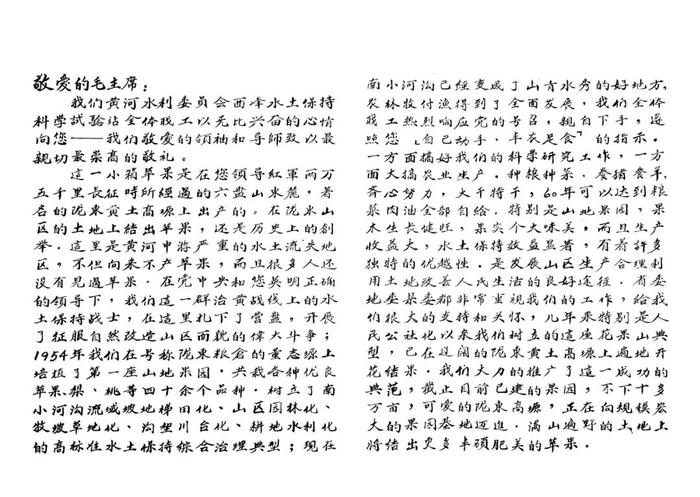 敬爱的毛主席：
我们黄河水利委員会西峰水土保持
科学試驗站全体戝工以无比兴奋的心情
向您——我们敬爱的領袖和导師致以最
親切最崇高的敬礼。
這一小箱苹果是在您領导紅軍两万
五千里長征時所經過的六盤山東麓，著
名的陇東黄土高塬上出产的。在陇東山
區的土地上結出苹果，还是历史上的創
举。這里是黄河中游严重的水土流失地
區，不但向来不产苹果，而且很多人还
没有見過苹果。在党中共和您英明正确
的領导下，我们這一群治黄战线上的水
土保持战士，在這里扎下了营盤，开展
了征服自然改造山區面貌的偉大斗爭；
1954年我们在号称陇東粮倉的董志塬上
培植了第一座山地果园，共栽各种优良
苹果、梨、桃等四十余个品种。树立了南
小河沟流域坡地梯田化、山区园林化、
牧坡草地化、沟壑川台化、耕地水利化
的高标准水土保持綜合治理典型；現在
南小河沟已經変成了山青水秀的好地方，
农林牧付漁得到了全面发展，我们全体
戝工热烈响应党的号召，親自下手，遵
照您「自己动手，丰衣足食」的指示。
一方面搞好我们的科学研究工作，一方
面大搞农业生产。种粮种菜、养猪食羊，
齐心努力，大干特干，60年可以达到粮
菜肉油全部自給。特别是山地果园，果
木生長健旺，果实个大味美，而且生产
收益大，水土保持效益显著，有着許多
独特的优越性。是发展山区生产合理利
用土地改善人民生活的良好途径。省委
地委县委都非常重視我们的工作，給我
们很大的支持和关怀，几年来特别是人
民公社化以来我们树立的這座花果山典
型，已在遼闊的陇東黄土高塬上遍地开
花結果。我们大力的推广了這一成功的
典范，截止目前已建的果园，不下十多
万亩，可爱的陇東高塬，正在向規模宏
大的果园基地迈進。满山遍野的土地上
將結出更多丰碩肥美的苹果。